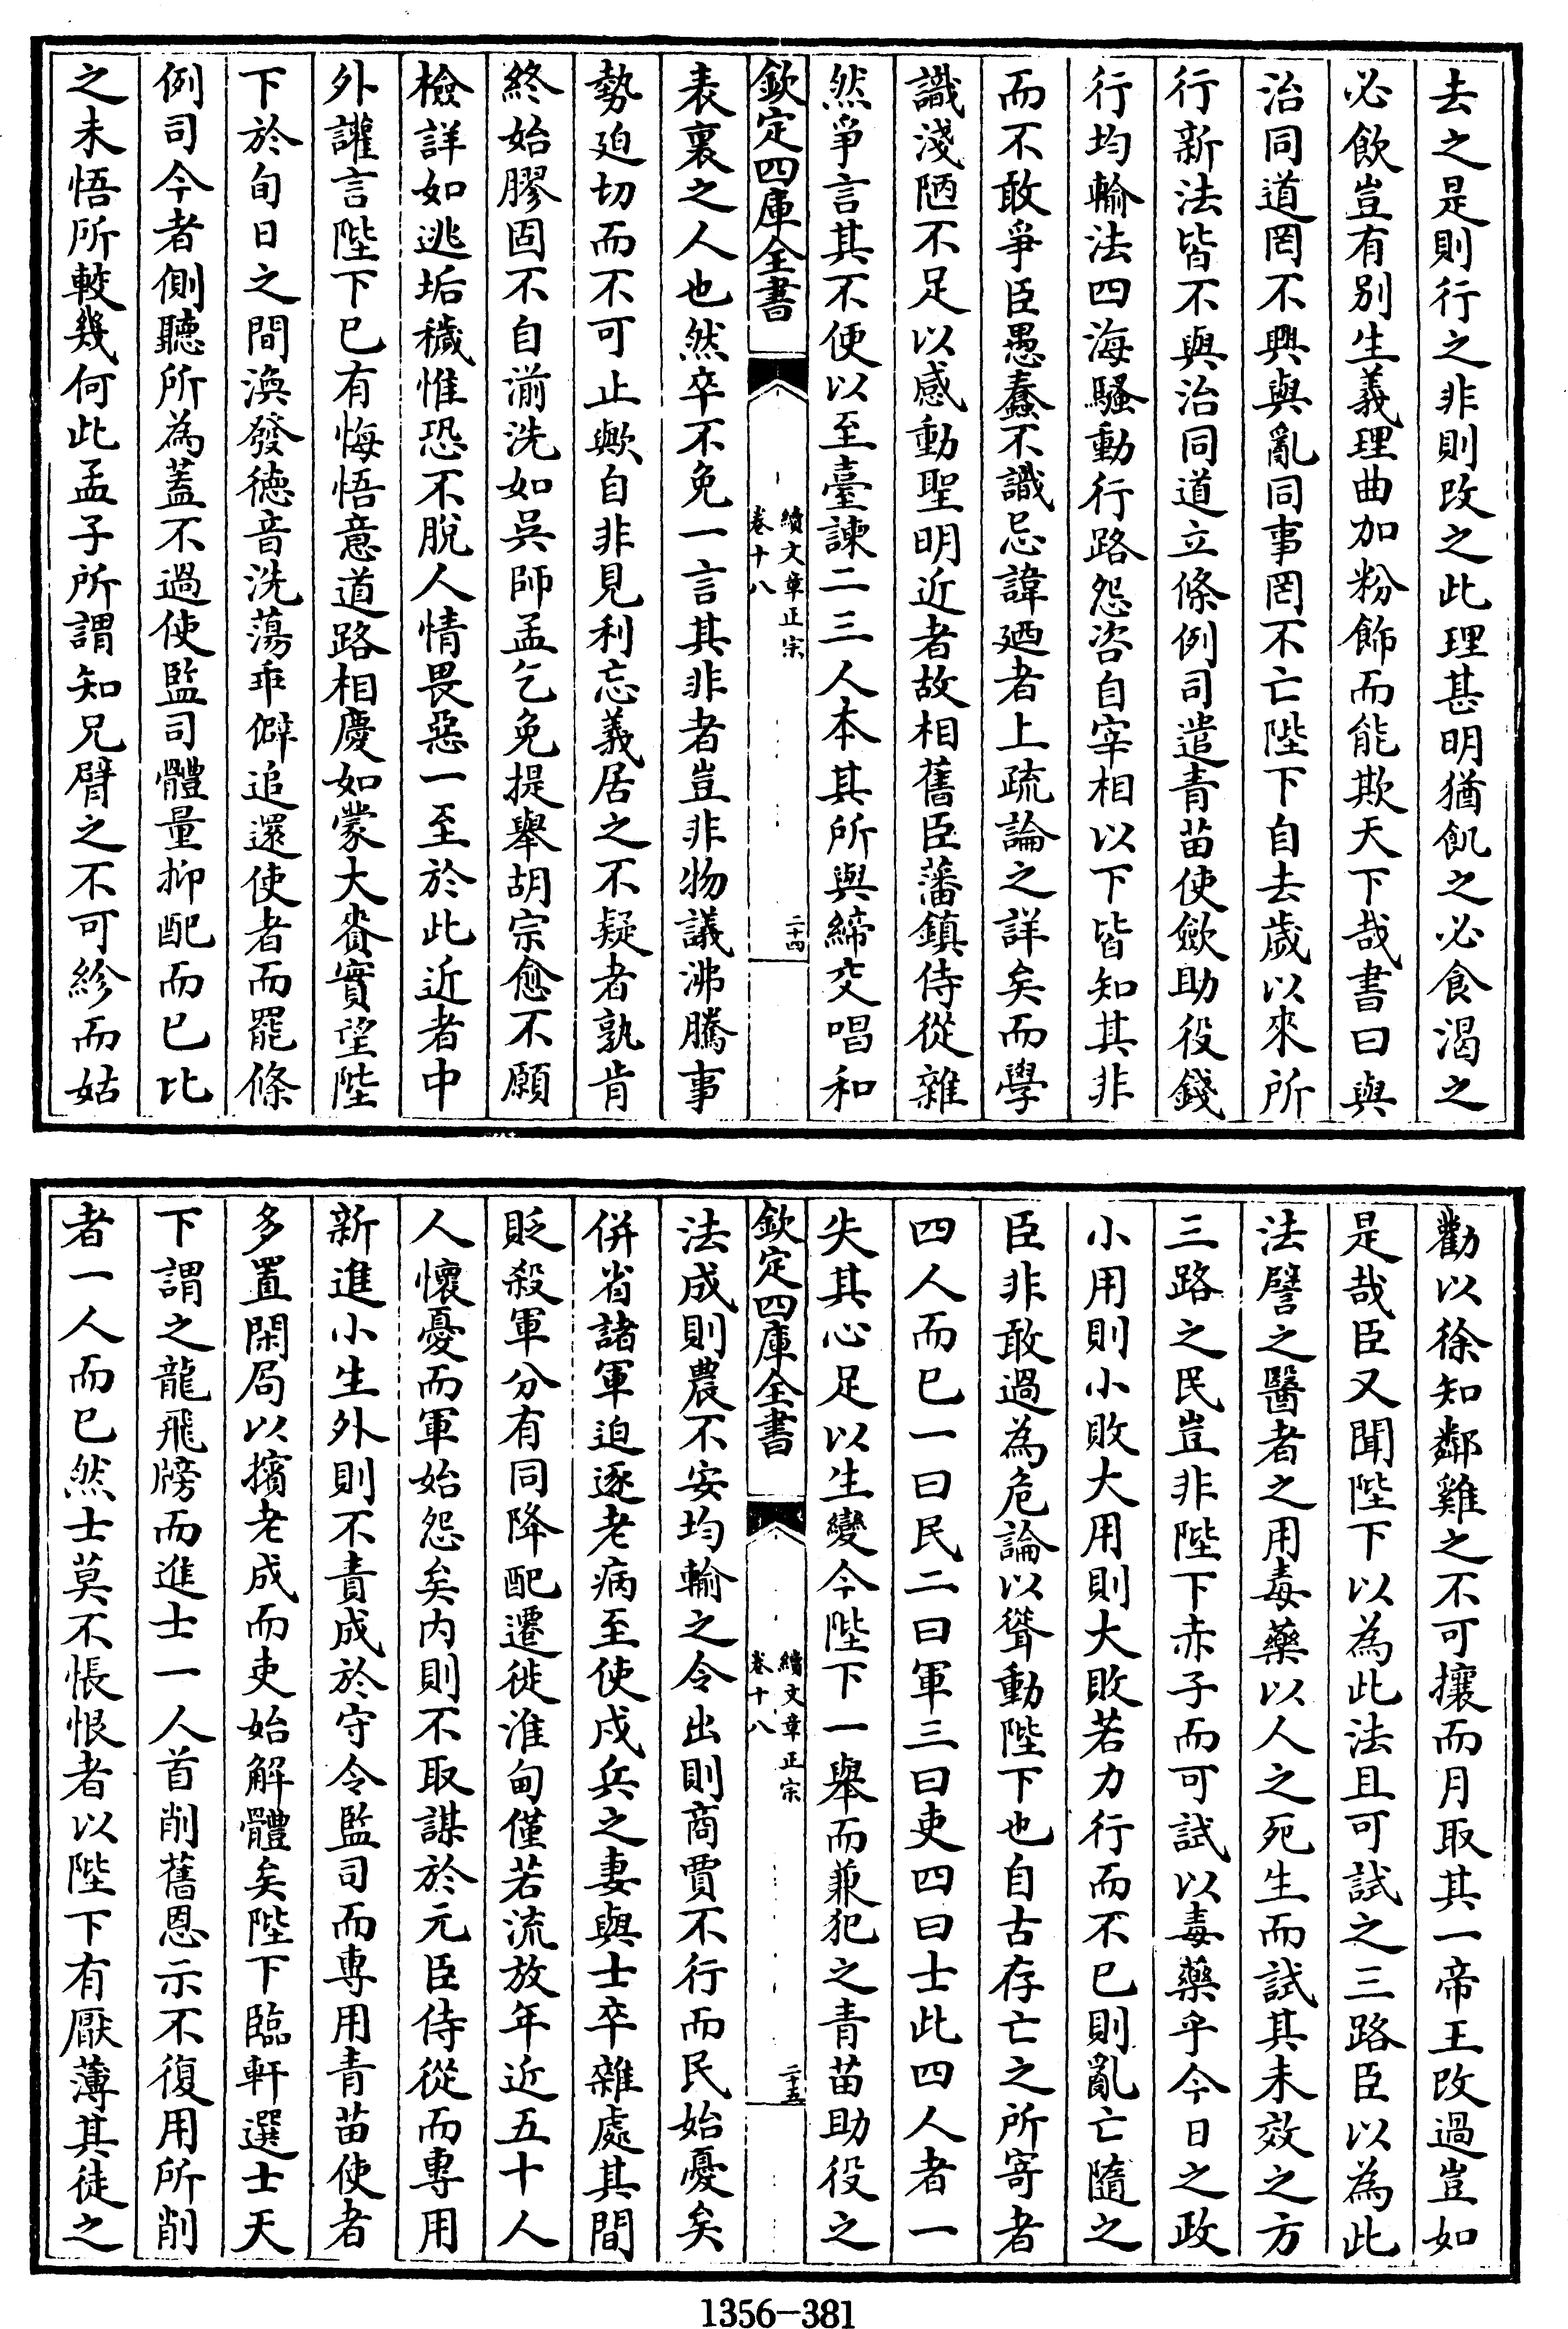 去之是則行之非則改之此理甚明猶飢之必食渴之
必飲豈有別生義理曲加粉飾而能欺天下哉書曰與
治同道罔不興與亂同事罔不亡陛下自去歲以來所
行新法皆不與治同道立條例司遣青苗使歛助役錢
行均輸法四海騷動行路怨咨自宰相以下皆知其非
而不敢爭臣愚蠢不識忌諱廼者上疏論之詳矣而學
識淺陋不足以感動聖明近者故相舊臣藩鎮侍從雜
然爭言其不便以至臺諫二三人本其所與締交唱和
欽定四庫全書
續文章正宗
卷十八
二十四
表裏之人也然卒不免一言其非者豈非物議沸騰事
勢廹切而不可止歟自非見利忘義居之不疑者孰肯
終始膠固不自湔洗如吳師孟乞免提舉胡宗愈不願
檢詳如逃垢穢惟恐不脫人情畏惡一至於此近者中
外讙言陛下已有悔悟意道路相慶如蒙大賚實望陛
下於旬日之間渙發德音洗蕩乖僻追還使者而罷條
例司今者側聽所為蓋不過使監司體量抑配而已比
之未悟所較幾何此孟子所謂知兄臂之不可紾而姑
勸以徐知鄰雞之不可攘而月取其一帝王改過豈如
是哉臣又聞陛下以為此法且可試之三路臣以為此
法譬之醫者之用毒藥以人之死生而試其未效之方
三路之民豈非陛下赤子而可試以毒藥乎今日之政
小用則小敗大用則大敗若力行而不已則亂亡隨之
臣非敢過為危論以聳動陛下也自古存亡之所寄者
四人而已一曰民二曰軍三曰吏四曰士此四人者一
失其心足以生變今陛下一舉而兼犯之青苗助役之
欽定四庫全書
續文章正宗
卷十八
二十五
法成則農不安均輸之令出則商賈不行而民始憂矣
併省諸軍迫逐老病至使戍兵之妻與士卒雜處其間
貶殺軍分有同降配遷徙淮甸僅若流放年近五十人
人懷憂而軍始怨矣内則不取謀於元臣侍從而專用
新進小生外則不責成於守令監司而專用青苗使者
多置閑局以擯老成而吏始解體矣陛下臨軒選士天
下謂之龍飛牓而進士一人首削舊恩示不復用所削
者一人而已然士莫不悵恨者以陛下有厭薄其徒之
1356-381